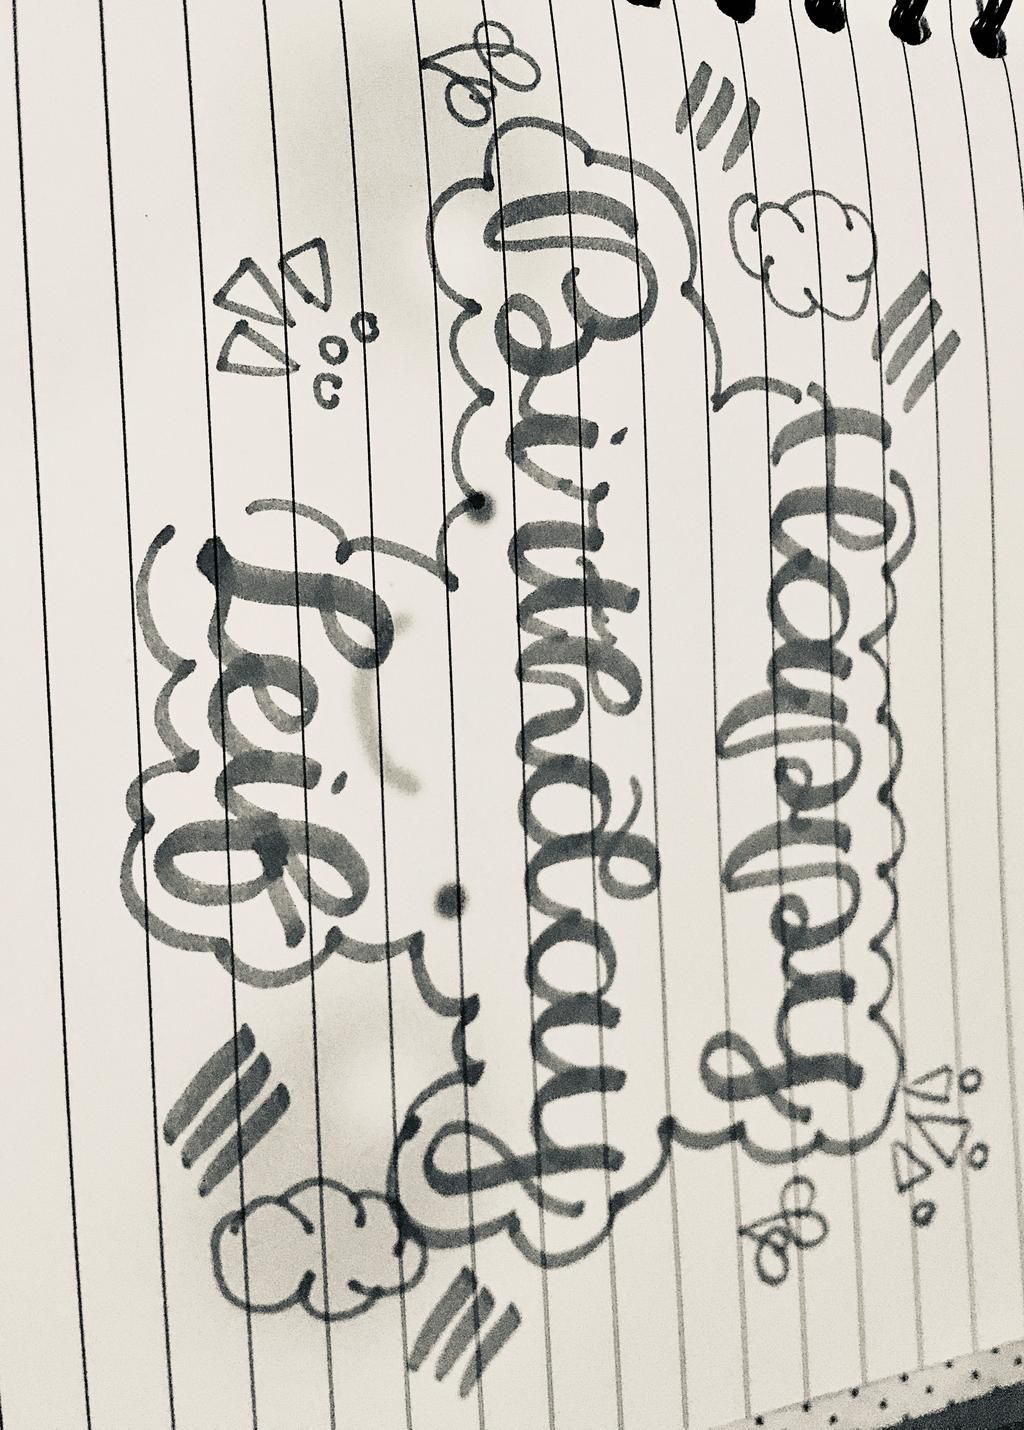 Happy
Birthday
Leif